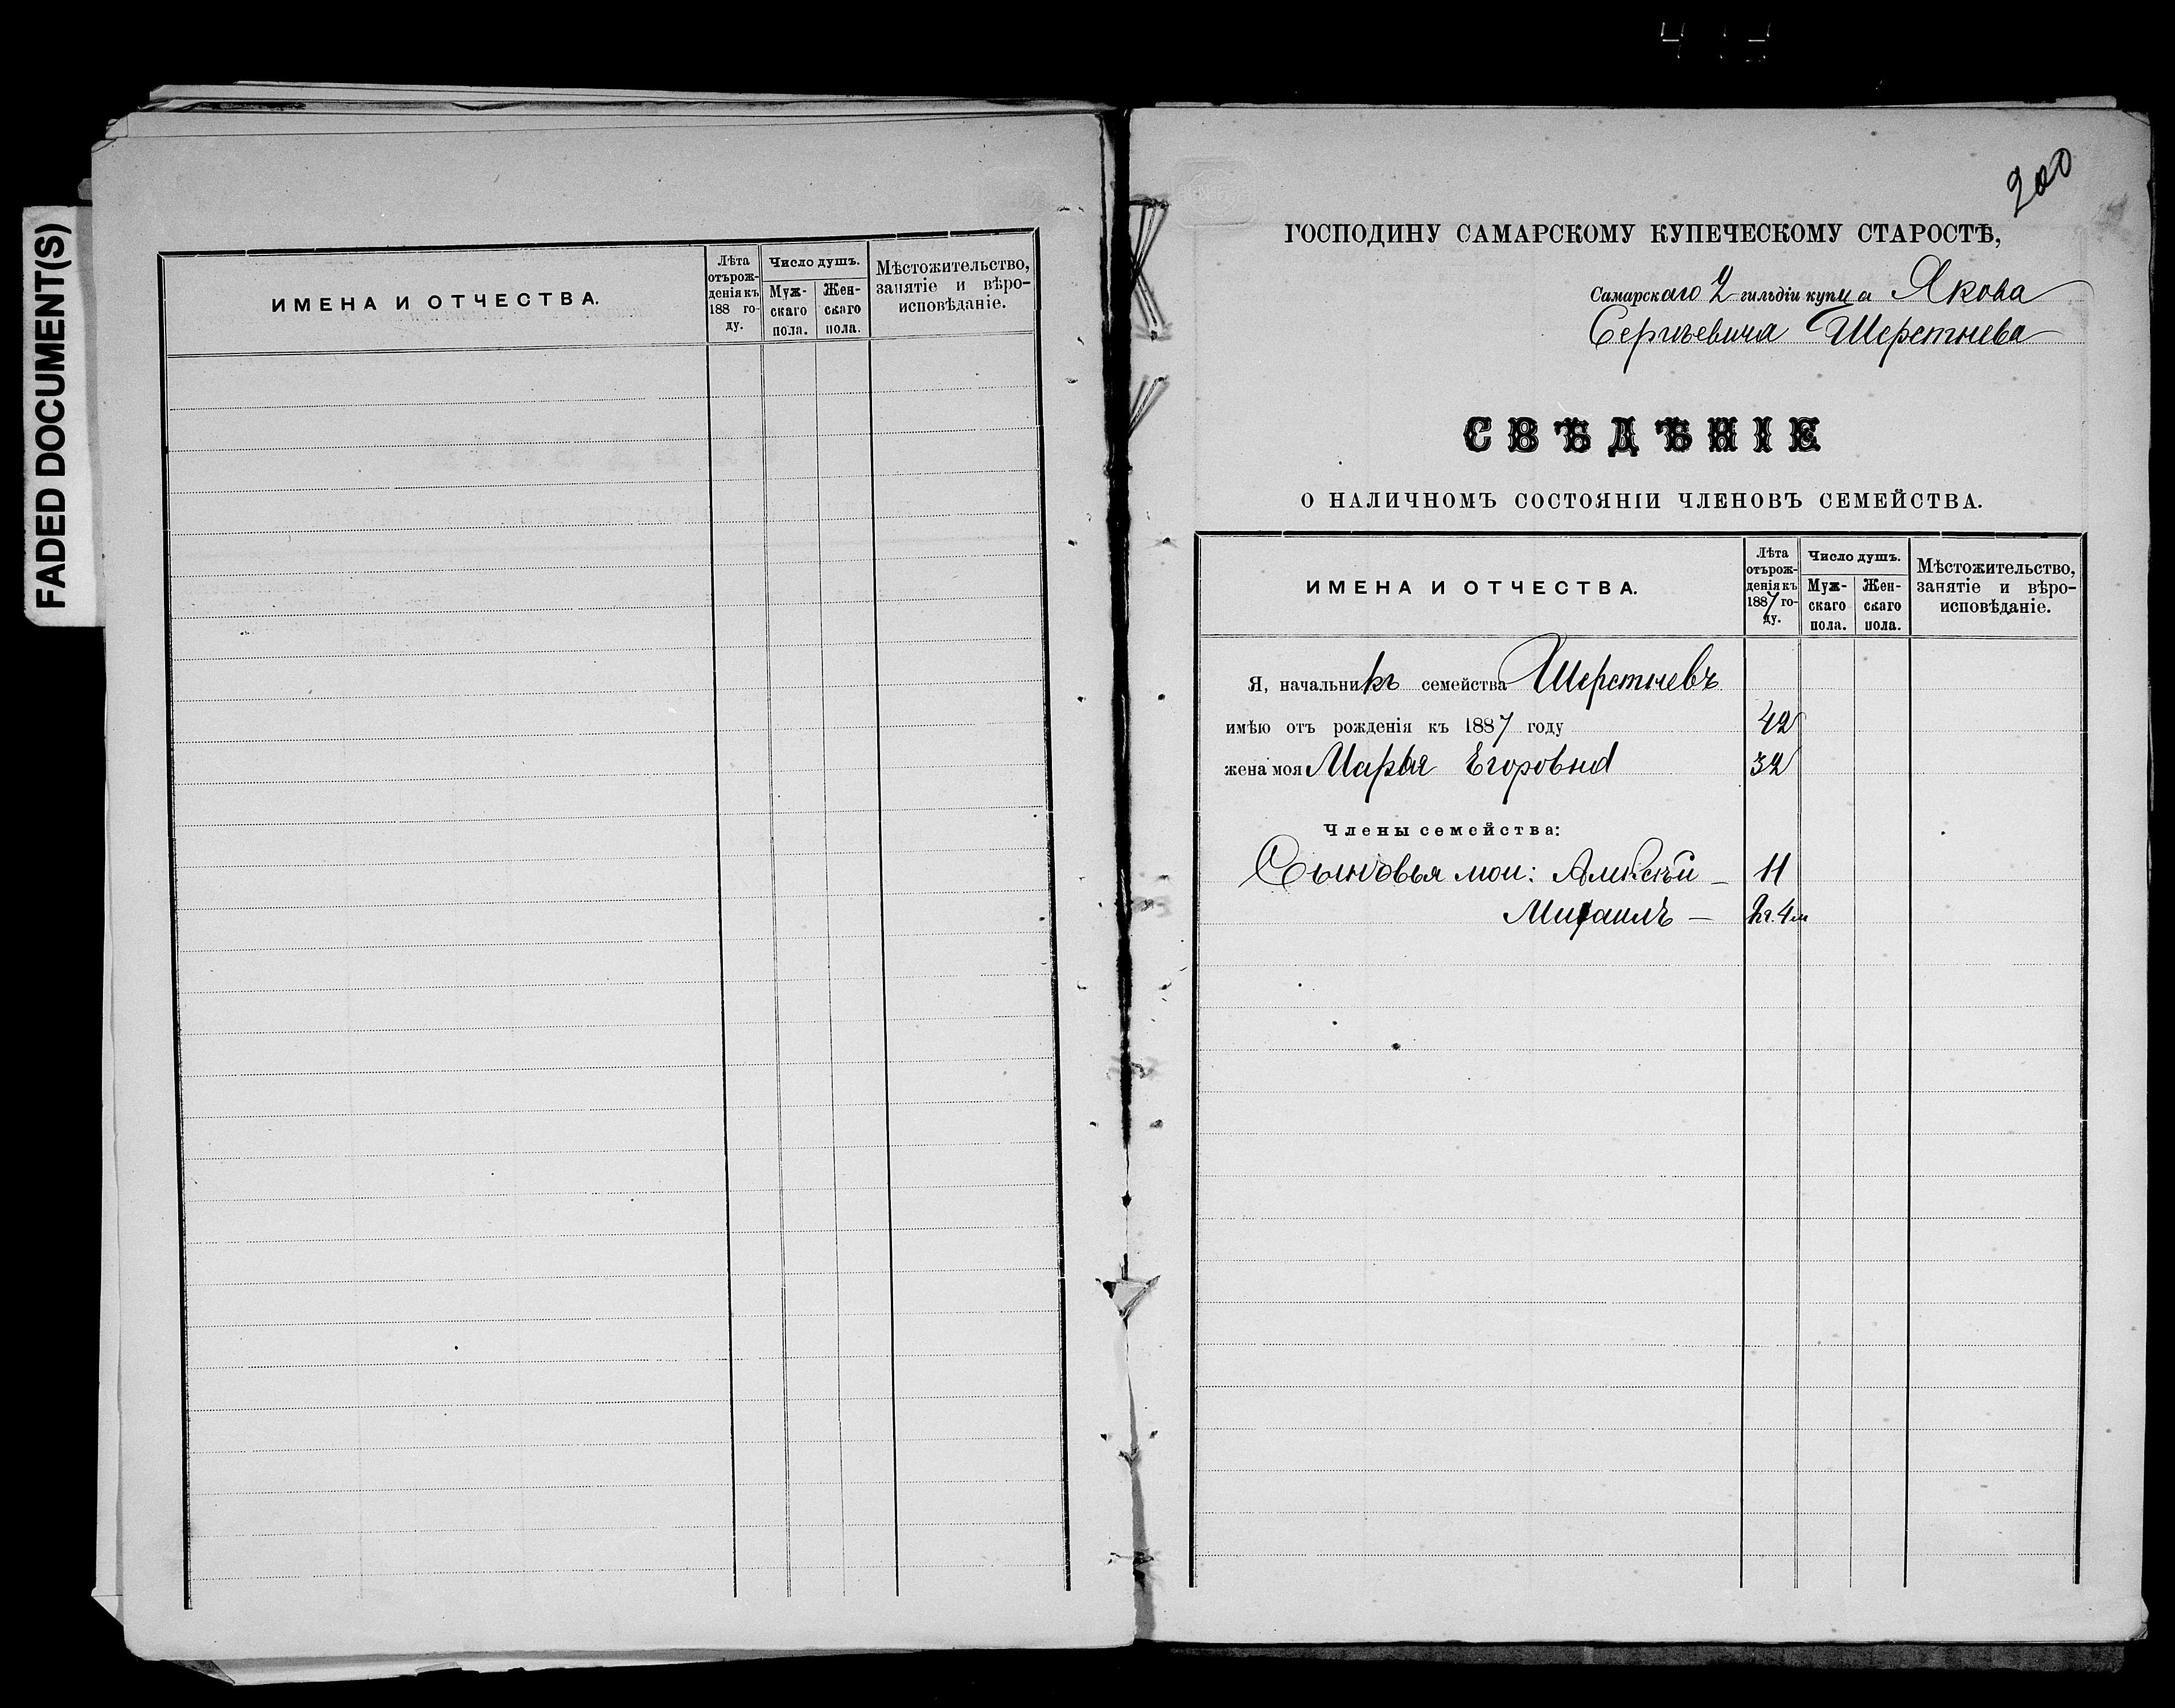 FADED DOCUMENT(S)
ИМЕНА И ОТЧЕСТВА.
Лѣта
отърож-
денія къ
188 го-
ду.
Число душъ.
Муж-
скаго
пола.
Жен-
скаго
пола.
Мѣстожительство,
занятіе и вѣро-
исповѣданіе.
200
ГОСПОДИНУ САМАРСКОМУ КУПЕЧЕСКОМУ СТАРОСТѢ,
Самарскаго 2 гильдіи купца Якова
Сергѣевича Шерстнева
СВѢДѢНІЕ
О НАЛИЧНОМЪ СОСТОЯНІИ ЧЛЕНОВЪ СЕМЕЙСТВА.
ИМЕНА И ОТЧЕСТВА.
Лѣта
отърож-
денія къ
1887 го-
ду.
Число душъ.
Муж-
скаго
пола.
Жен-
скаго
пола.
Мѣстожительство,
занятіе и вѣро-
исповѣданіе.
Я, начальникъ семейства Шерстневъ
имѣю отъ рожденія къ 1887 году 42
жена моя Марья Егоровна 32
Члены семейства:
Сыновья мои: Алексѣй — 11
Михаилъ — 2 г. 4 м